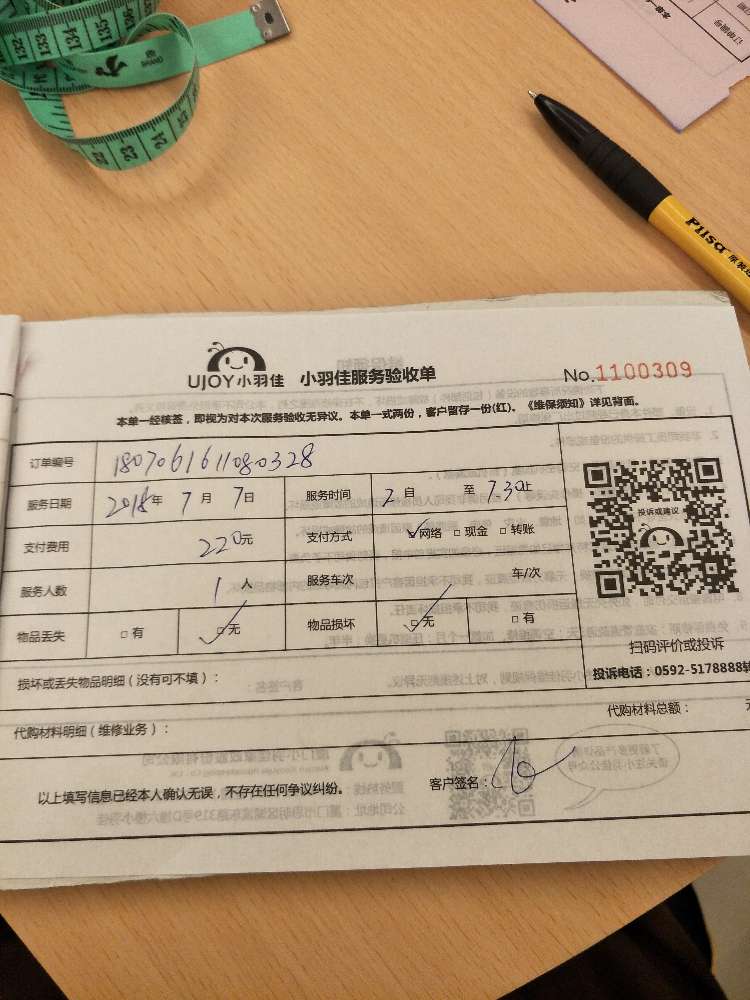 132 133 134 135
24 23 22
订单编号
Pilsa
UJOY小羽佳 小羽佳服务验收单 No.1100309
本单一经核签，即视为对本次服务验收无异议。本单一式两份，客户留存一份(红)。《维保须知》详见背面。
订单编号 180706161080328
服务日期 2018年 7月 7日 服务时间 2自 至 7:30止
支付费用 220元 支付方式 ☑网络 □现金 □转账
服务人数 1人 服务车次 车/次
物品丢失 □有 ☑无 物品损坏 ☑无 □有
投诉或建议
扫码评价或投诉
投诉电话：0592-5178888转
损坏或丢失物品明细（没有可不填）：
代购材料明细（维修业务）： 代购材料总额：
以上填写信息已经本人确认无误，不存在任何争议纠纷。 客户签名：